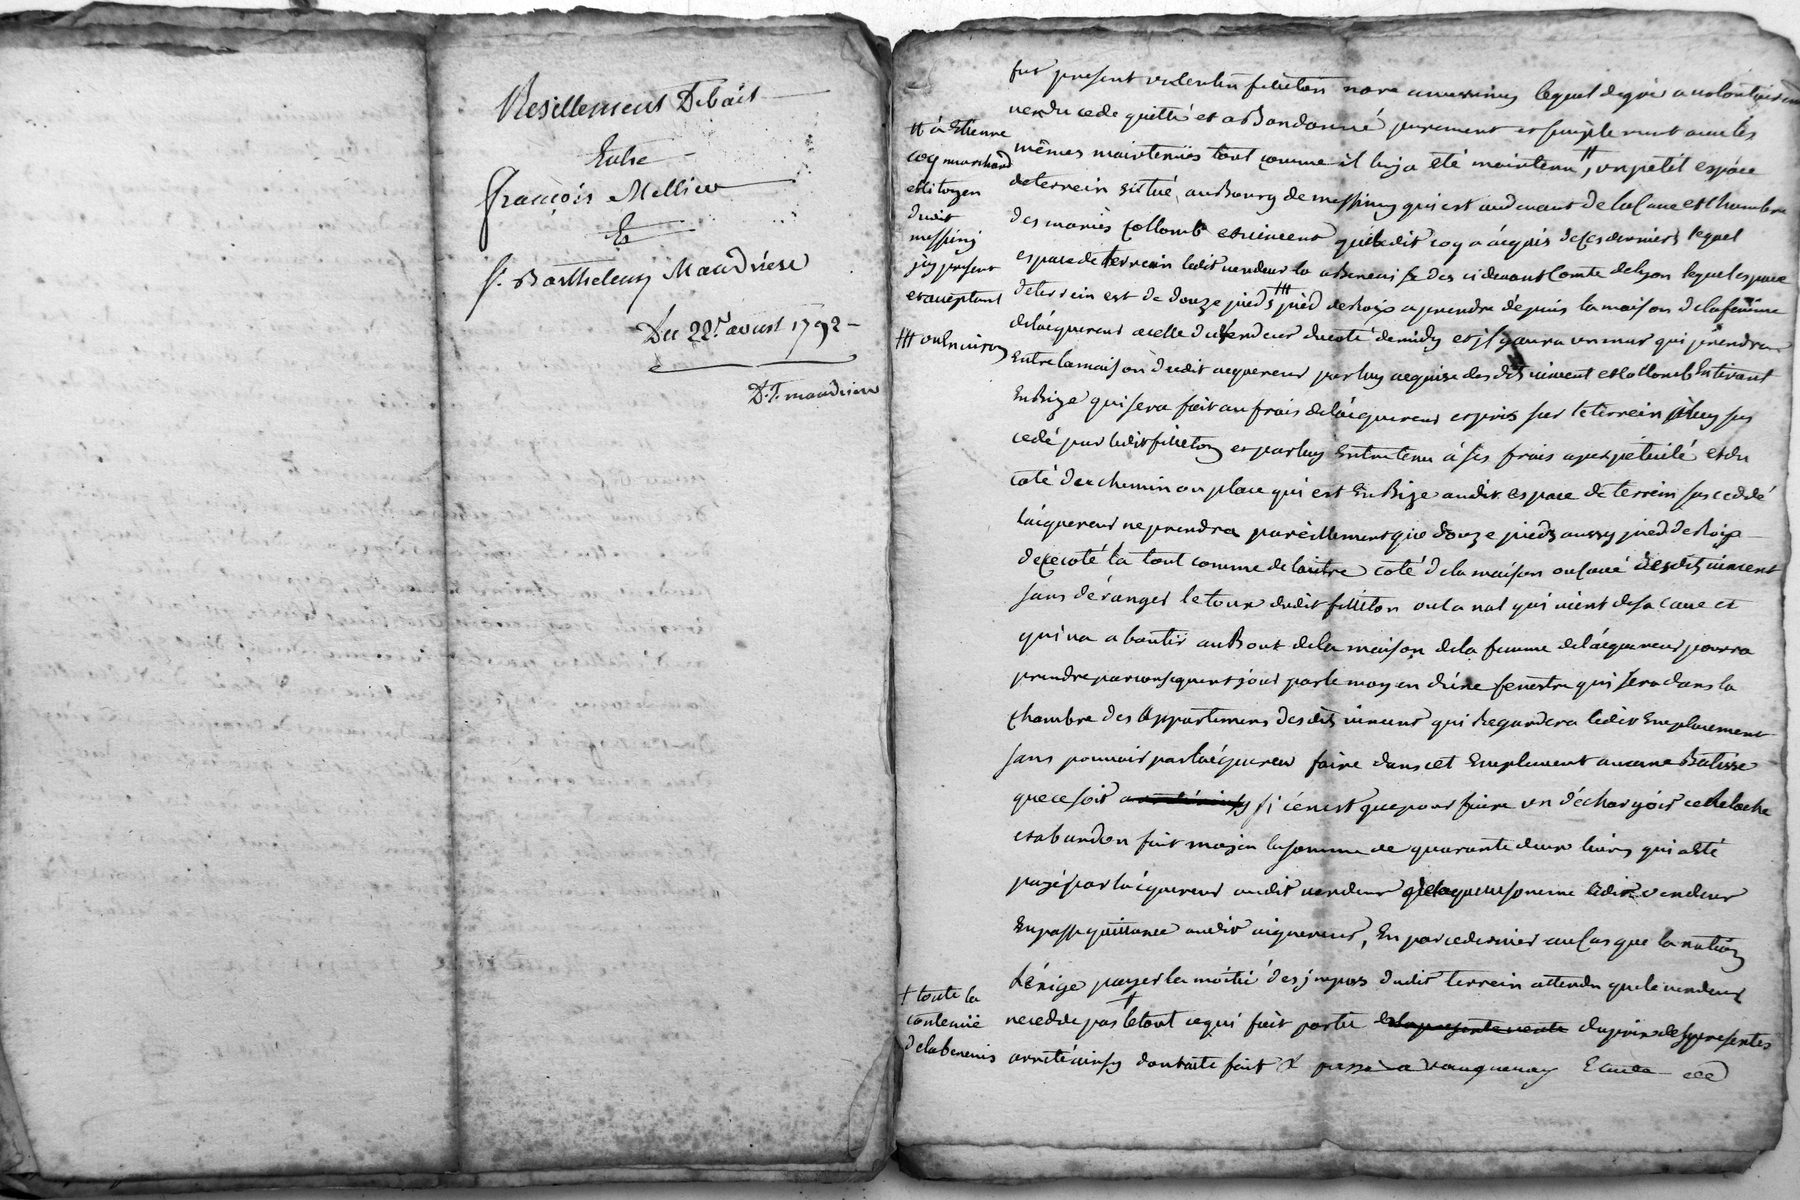 Resillement Debail
Entre
françois Mellieu
Et
s.r Barthelemy Maudriere
Du 22.e aoust 1792
D. P. maudriere
fut present valentin filliton nore a messimy lequel degré a volontairement
vendu cede quitté et aBandonné purement et simplement avec les
mêmes maintenües tout comme il luy a été maintenu, # un petit espace
de terrein situé au Bourg de messimy qui est audevant de la Cave et Chambre
des mariés Collomb et vincent que ledit coq a acquis de ces derniers lequel
espace de terrein ledit vendeur la aBenevisé des cidevant Comte de lyon lequel espace
de terrein est de douze pieds ### pied de Roix a prendre dépuis la maison de la femme
de lacquereur a celle du vendeur du coté de midy et il y aura un mur qui prendra
Entre la maison dudit acquereur par luy acquise des dits vincent et Collomb En tirant
En Bize qui sera fait au frais de lacquereur et pris sur le terrein a luy sus
cedé par ledit filliton et par luy Entretenu à ses frais a perpétuité et du
coté du chemin ou place qui est En Bize audit espace de terrein sus cedé
lacquereur ne prendra pareillement que douze pieds aussy pied de Roix
de ce coté la tout comme de lautre coté de la maison ou cavé desdits vincent
sans déranger le tour dudit filliton ou la nal qui vient de sa cave et
qui va a boutir au Bout de la maison de la femme de lacquereur pourra
prendre par consequent jour par le moyen dune fenestre qui sera dans la
chambre des appartemens des dits vincent qui Regardera ledit Emplacement
sans pouvoir par lacquereur faire dans cet Emplacement aucune Batisse
que ce soit si cenest que pour faire un déchargéoir ce Relache
et abandon fait moyen la somme de quarante deux livres qui a été
payé par lacquereur audit vendeur de laquelle somme ledit vendeur
En passe quittance audit acquereur, En par ce dernier au Cas que la nation
Lexige payer la moitié des impots dudit terrein attendu que le vendeur
ne cedde pas † le tout ce qui fait partie du prix des presentes
arrité ainsy dont acte fait & passé a vaugneray Etude
# à Etienne
coq marchand
et citoyen
dudit
messimy
icy present
et acceptant
### ou Environ
† toute la
contenüe
de la benevis